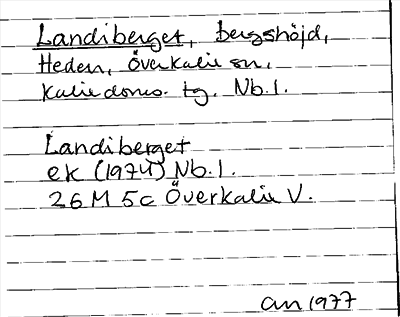 Landiberget, bergshöjd,
Heden, Överkalix sn,
Kalix doms. tg. Nb. l.
Landiberget
ek (1974) Nb. l.
26 M 5c Överkalix V.
an 1977